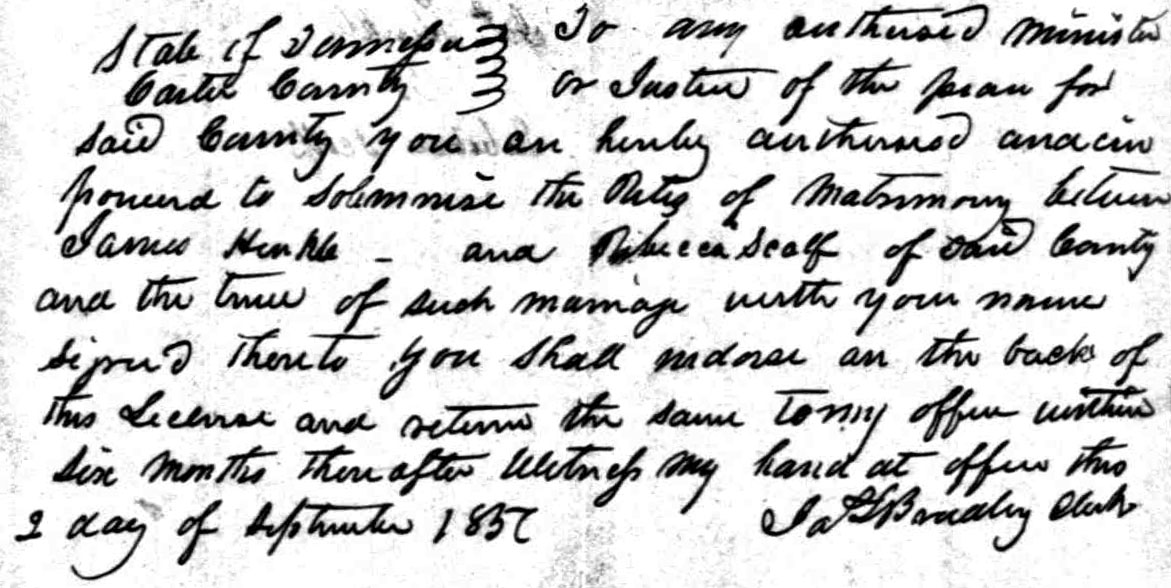 State of Tennessee } To any authorised minister
Carter County } or Justice of the peace for
said County you are hereby authorised and em
powered to Solemnise the Rites of Matrimony between
James Hinkle - and Rebecca Scalf of said County
and the time of such marriage with your name
signed thereto you shall indorse on the back of
this License and return the same to my office within
six months thereafter Witness my hand at office this
2 day of September 1857
Bradley Clerk